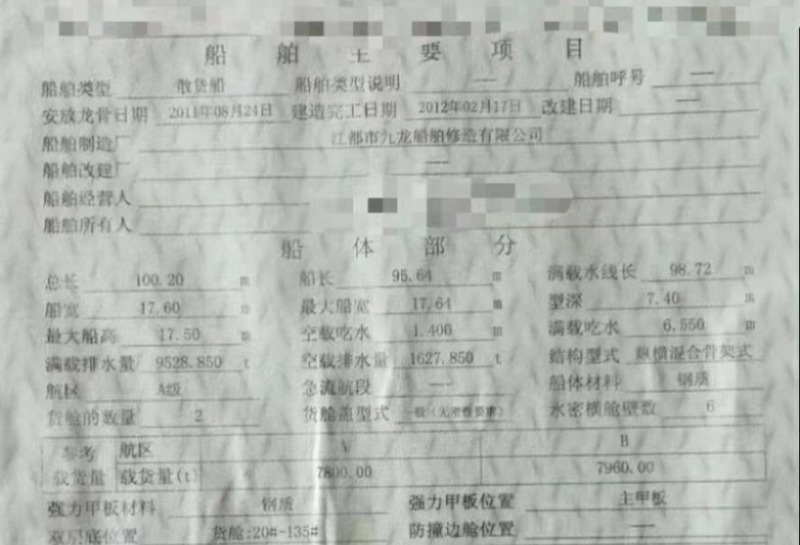 船舶主要项目
船舶类型 散货船 船舶类型说明 — 船舶呼号 —
安放龙骨日期 2011年08月24日 建造完工日期 2012年02月17日 改建日期 —
船舶制造厂 江都市九龙船舶修造有限公司
船舶改建厂 —
船舶经营人
船舶所有人
船体部分
总长 100.20 m 船长 95.64 m 满载水线长 98.72 m
船宽 17.60 m 最大船宽 17.64 m 型深 7.40 m
最大船高 17.50 m 空载吃水 1.400 m 满载吃水 6.550 m
满载排水量 9528.850 t 空载排水量 1627.850 t 结构型式 纵横混合骨架式
航区 A级 急流航段 — 船体材料 钢质
货舱的数量 2 货舱盖型式 一般 水密横舱壁数 6
参考 航区 B
载货量 载货量(t) 7800.00 7960.00
强力甲板材料 钢质 强力甲板位置 主甲板
双层底位置 货舱:20#-135# 防撞边舱位置 —